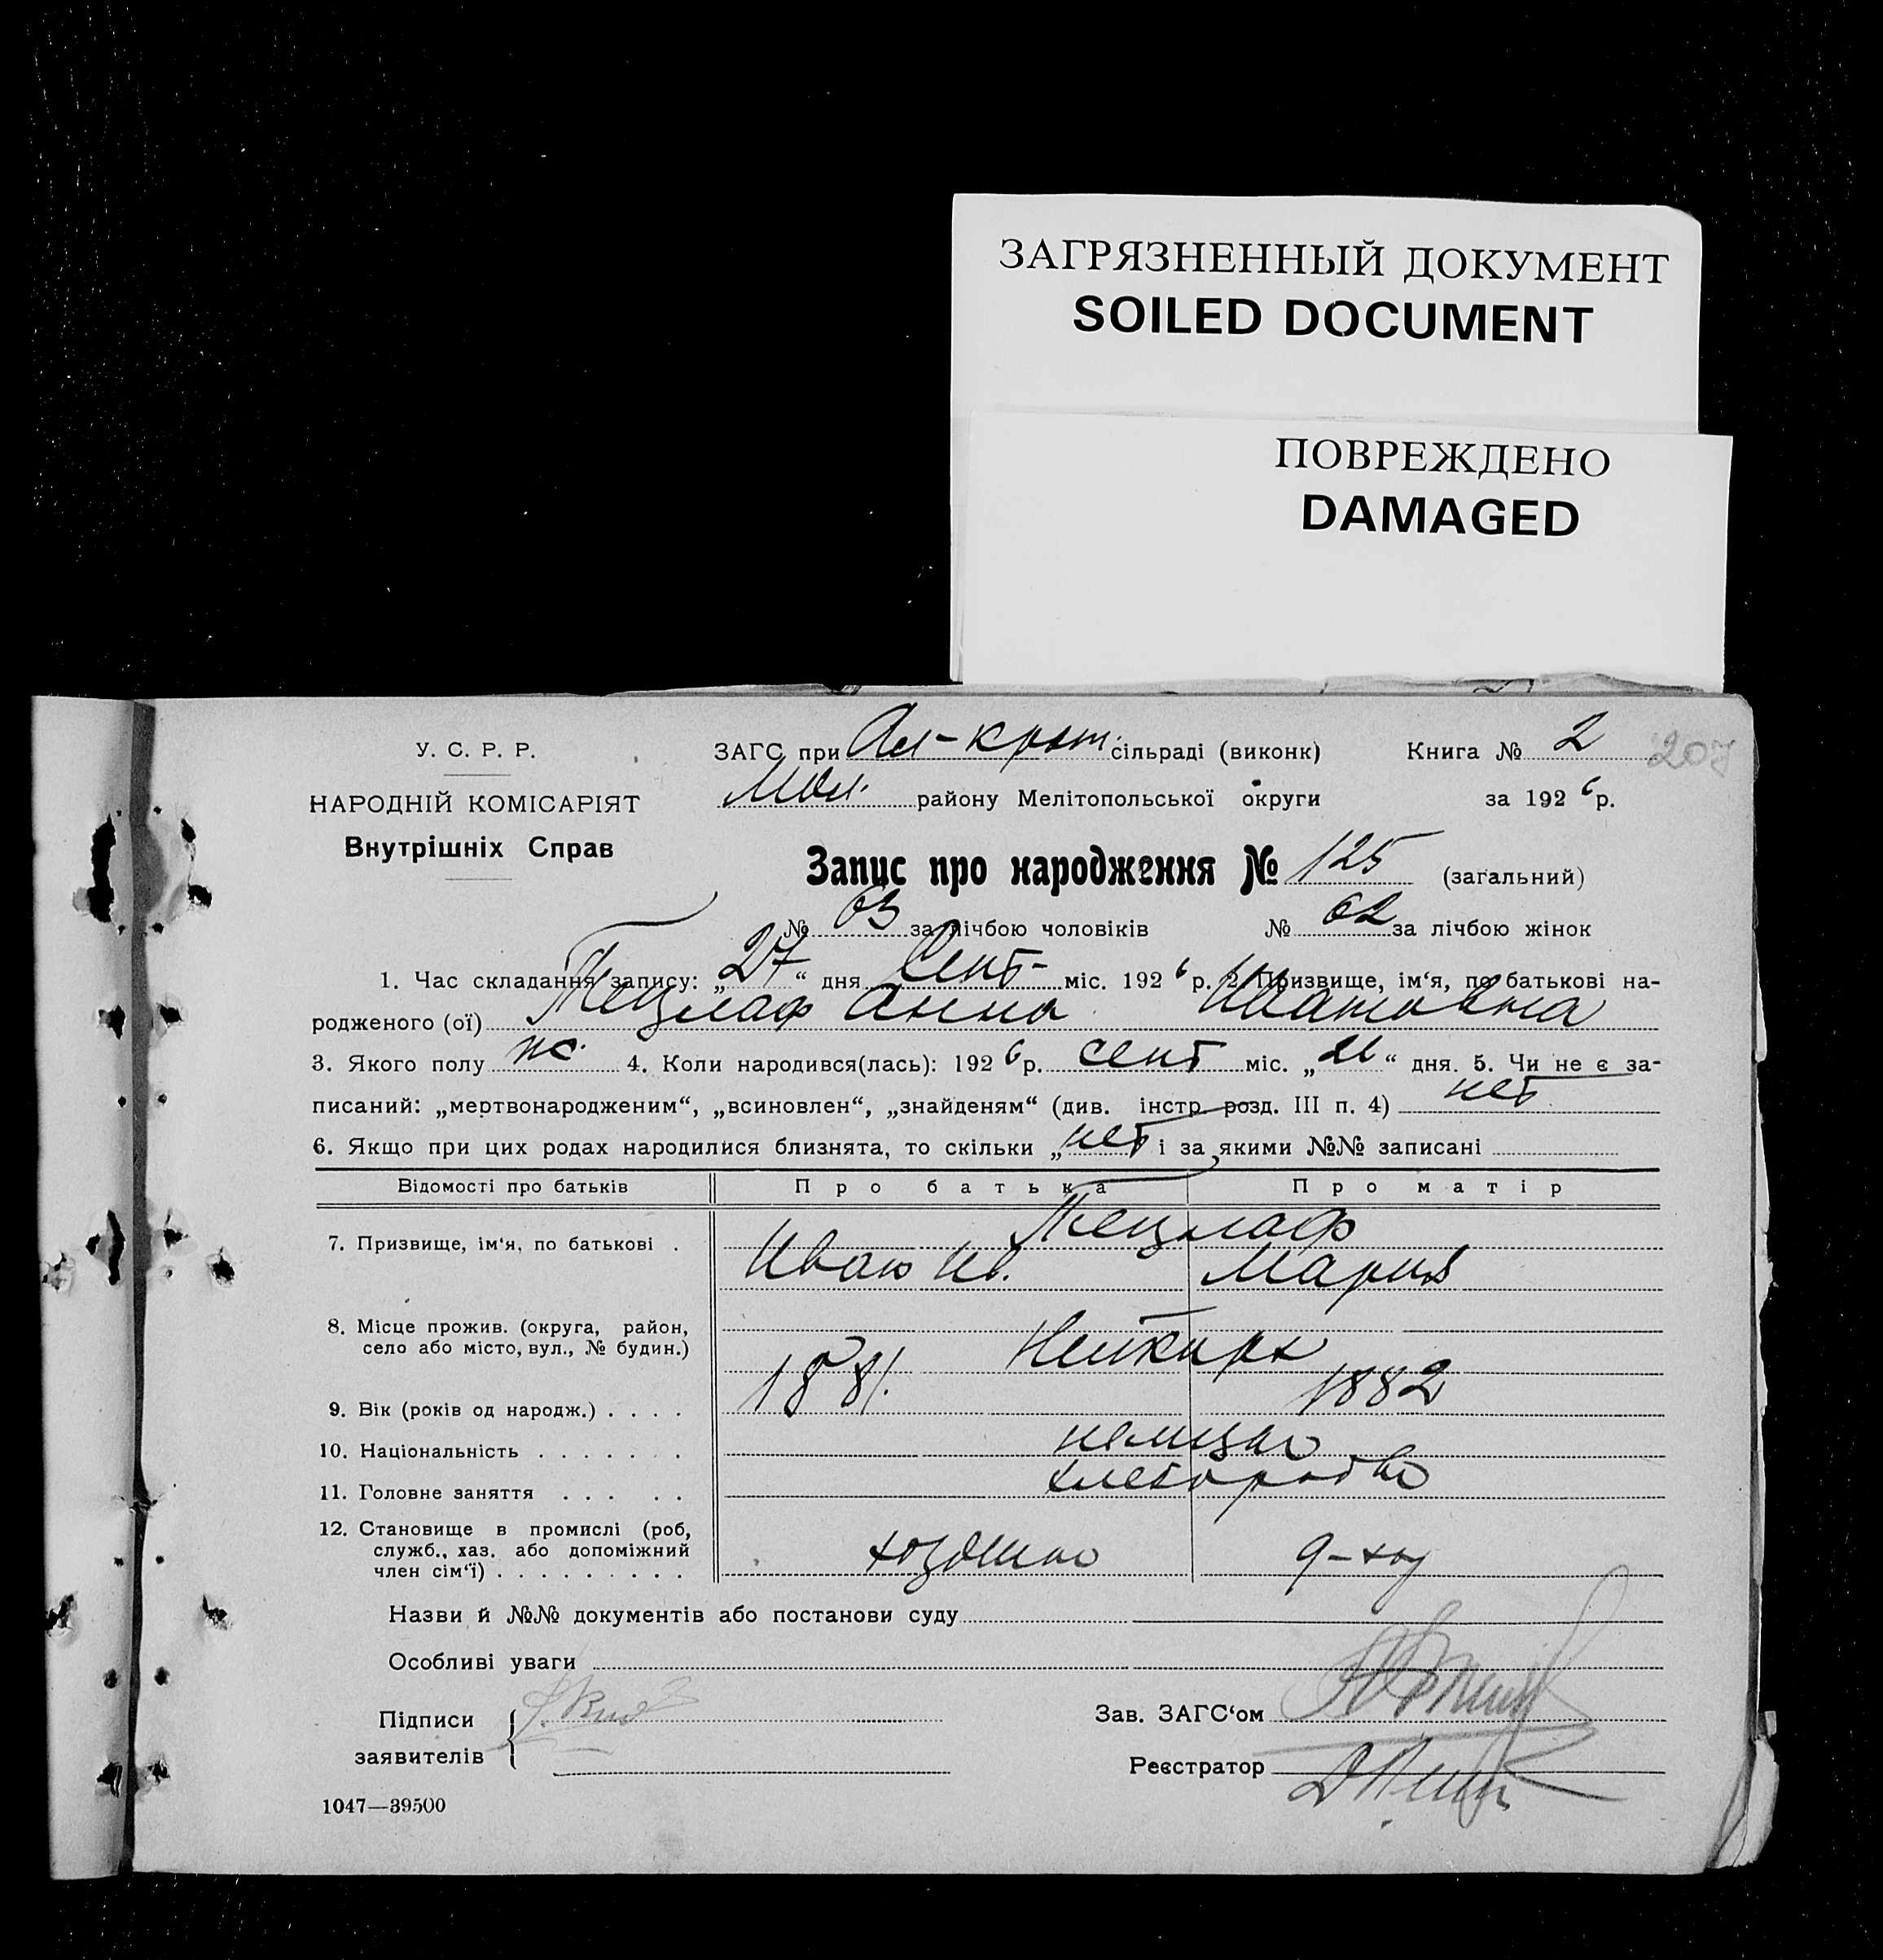 ЗАГРЯЗНЕННЫЙ ДОКУМЕНТ
SOILED DOCUMENT
ПОВРЕЖДЕНО
DAMAGED
У. С. Р. Р.
НАРОДНІЙ КОМІСАРІЯТ
Внутрішніх Справ
ЗАГС при Ал-крон. сільраді (виконк) Книга № 2 207
Мол. району Мелітопольської округи за 1926 р.
Запис про народження № 125 (загальний)
№ 63 за лічбою чоловіків № 62 за лічбою жінок
1. Час складання запису: „27“ дня Сент- міс. 1926 р. 2. Призвище, ім‘я, по батькові на-
родженого (ої) Тецлаф Анна Ивановна
3. Якого полу ж. 4. Коли народився(лась): 1926 р. сент міс. „ “ дня. 5. Чи не є за-
писаний: „мертвонародженим“, „всиновлен“, „знайденям“ (див. інстр. розд. III п. 4) нет
6. Якщо при цих родах народилися близнята, то скільки „нет і за якими №№ записані
Відомості про батьків Про батька Про матір
7. Призвище, ім‘я, по батькові . Тецлаф
Иван Ив. Мария
8. Місце прожив. (округа, район,
село або місто, вул., № будин.) Нейкирх
9. Вік (років од народж.) . . . . 1881. 1882
10. Національність . . . . . . . немцы
11. Головне заняття . . . . . хлебороб
12. Становище в промислі (роб,
служб., хаз. або допоміжний
член сім‘ї) . . . . . . . . . хозяин
Назви й №№ документів або постанови суду
Особливі уваги
Підписи
заявителів
Зав. ЗАГС‘ом
Реєстратор
1047—39500